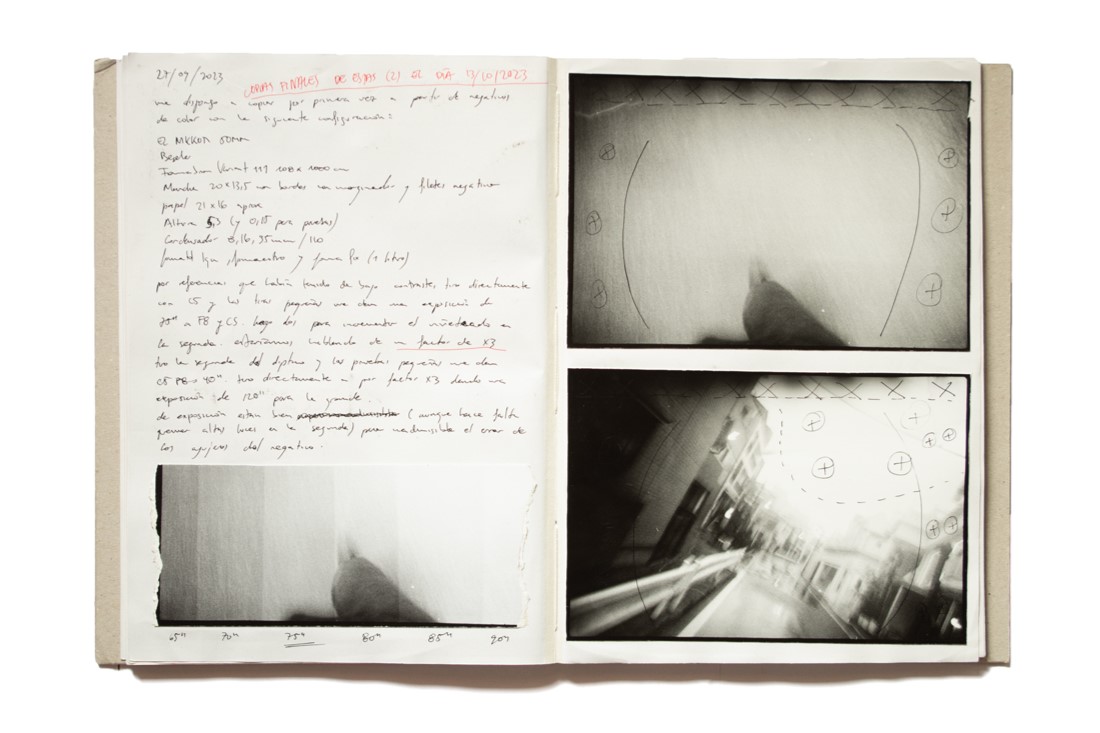 27/09/2023
COPIAS FINALES DE ESTAS (2) EL DÍA 13/10/2023
me dispongo a copiar por primera vez a partir de negativos
de color con la siguiente configuración:
EL NIKKOR 50mm
Beseler
Variant 111
20x13,5 con bordes con marginador y filetes negativo
papel 21x16 aprox
Altura 5,3 (y 0,15 para pruebas)
Condensador 8, 16, 35mm / 110
y (1 litro)
por referencias que habían tenido de bajo contraste, tiro directamente
con C5 y las tiras pequeñas me dan una exposición de
75" a F8 y C5. hago dos para incrementar el viñeteado en
la segunda. estaríamos hablando de un factor de X3
tiro la segunda del díptico y las pruebas pequeñas me dan
C5 F8 40". tiro directamente a por factor X3 dando una
exposición de 120" para la grande.
de exposición están bien (aunque hace falta
quemar altas luces en la segunda) pero inadmisible el error de
los agujeros del negativo.
65" 70" 75" 80" 85" 90"